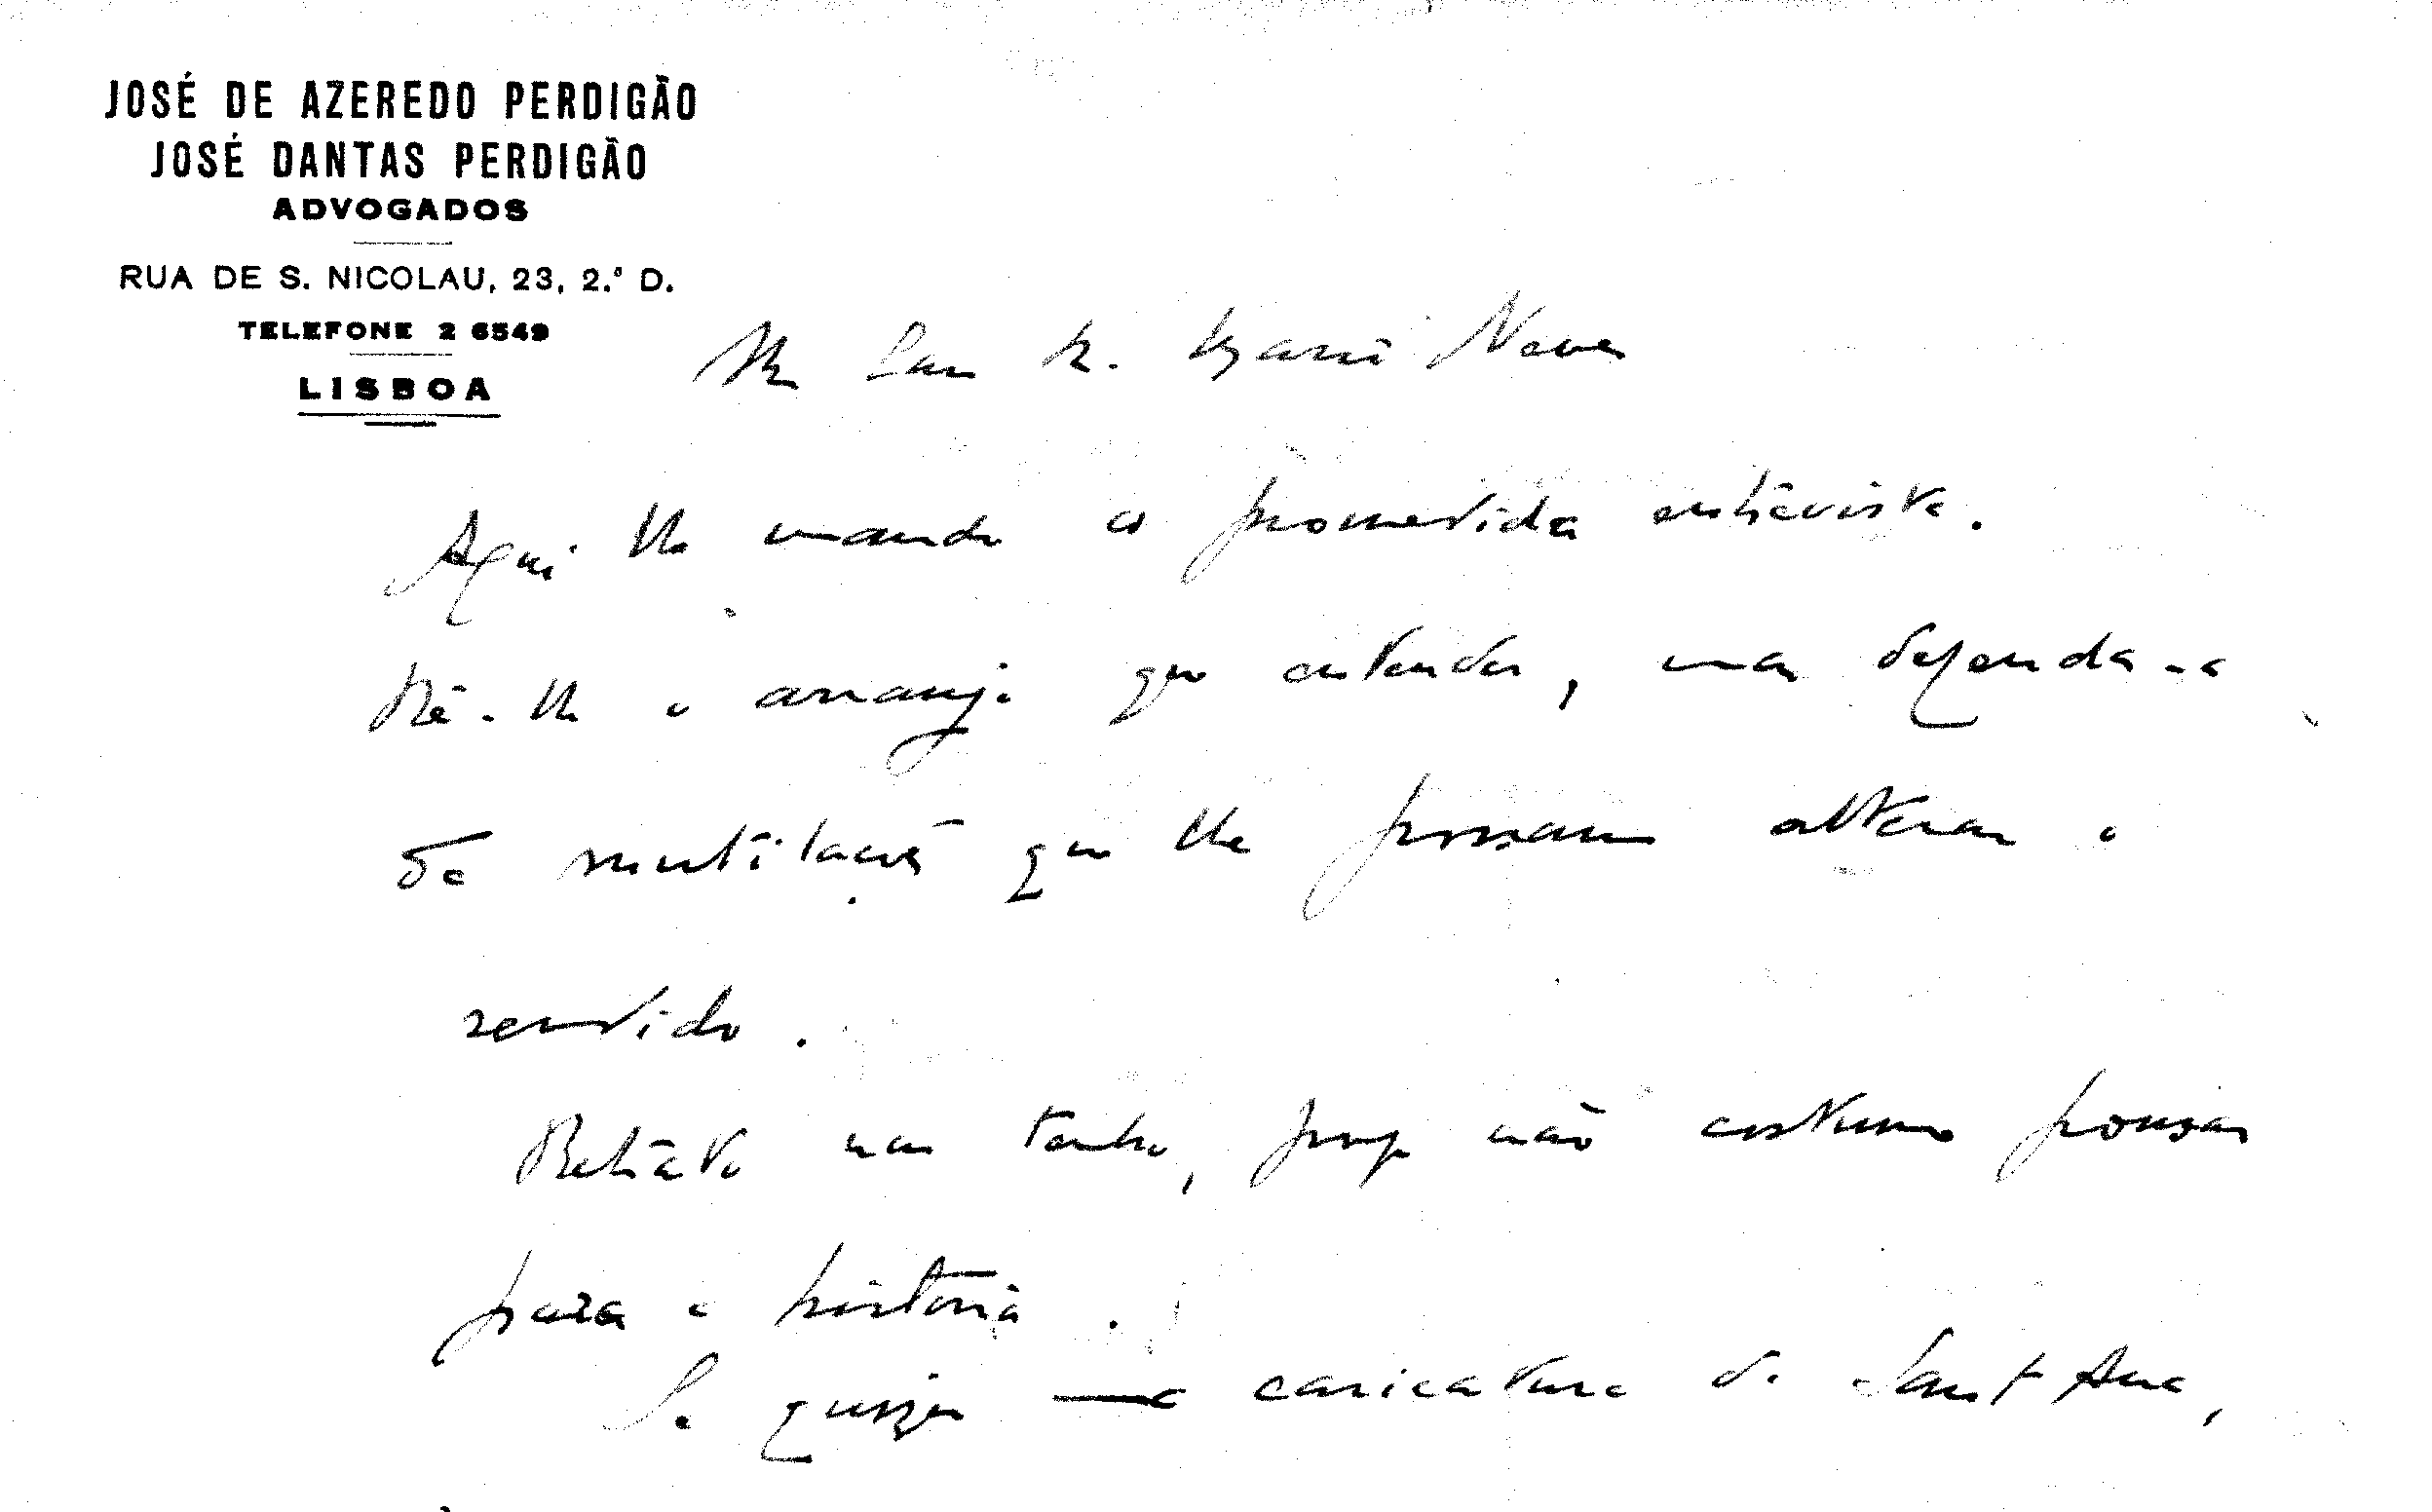 JOSÉ DE AZEREDO PERDIGÃO
JOSÉ DANTAS PERDIGÃO
ADVOGADOS
RUA DE S. NICOLAU, 23, 2.º D.
TELEFONE 2 6549
LISBOA
Mário Neves
Aqui lhe mando a prometida entrevista.
Dê-lhe o arranjo que entender, mas defenda-a
de mutilações que lhe possam alterar o
sentido.
Retrato não tenho, porq não costumo pousar
para a história.
Se quizer a caricatura de Sant'Ana,